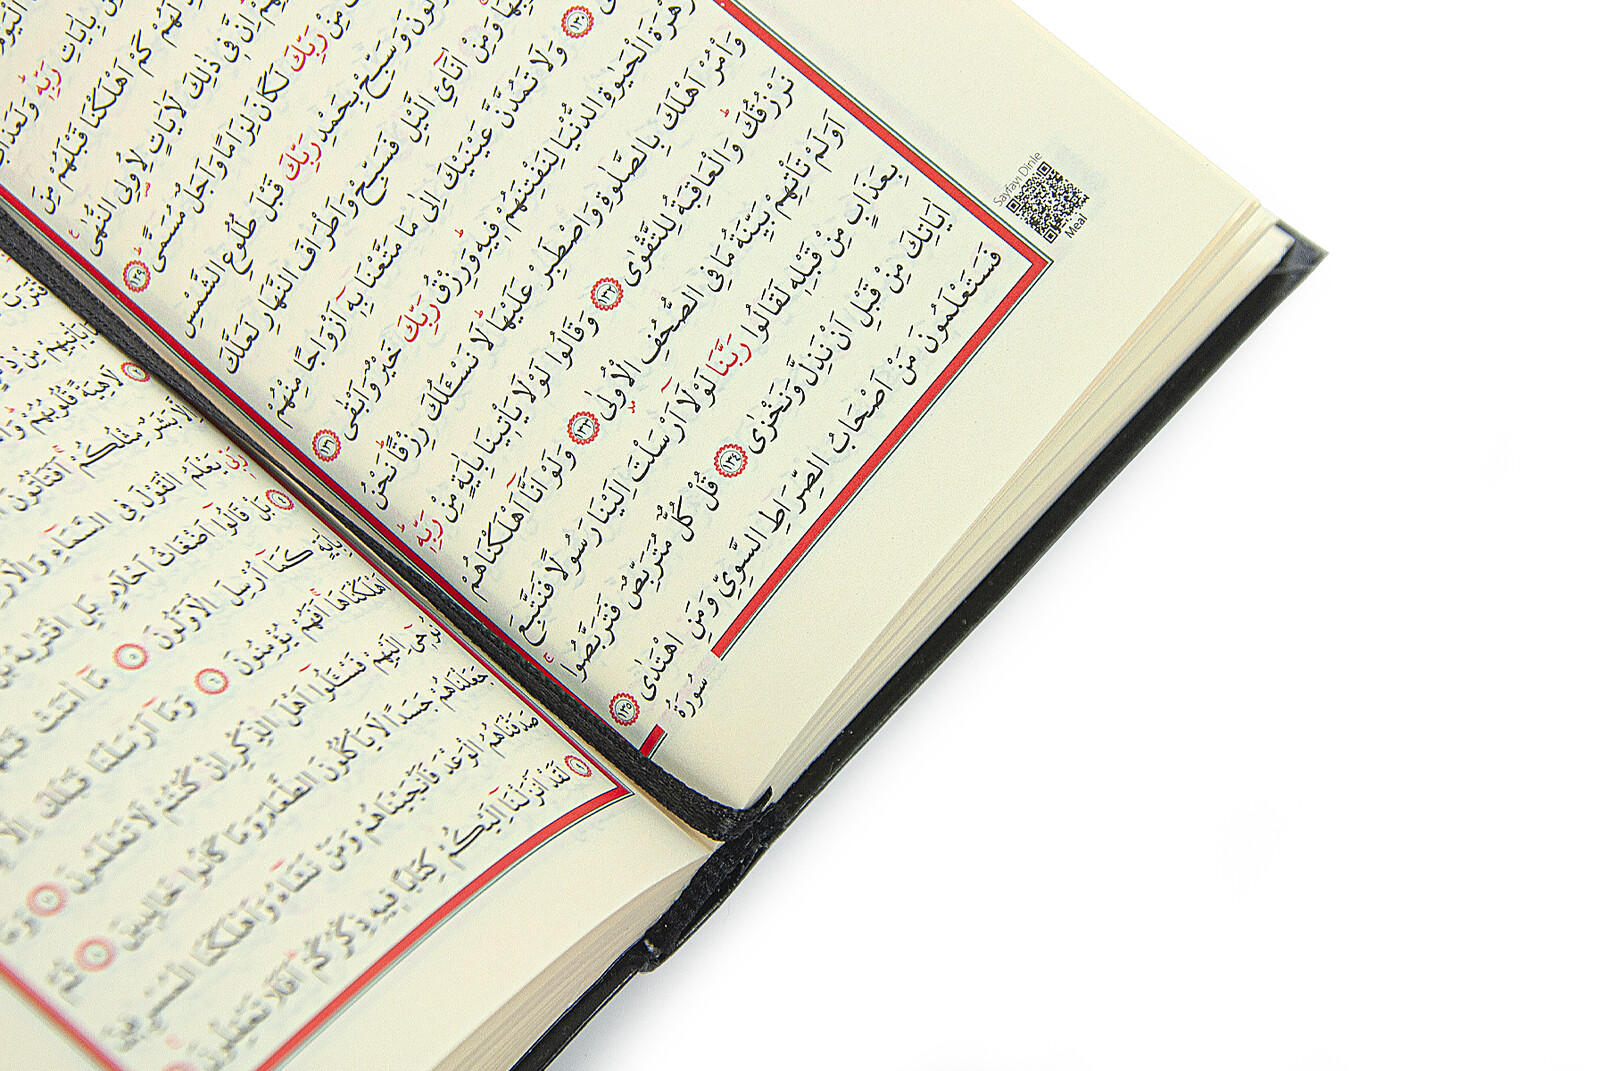 بِاٰيَاتِ رَبِّهٖ وَلَعَذَابُ
لَهُمْ كَمْ اَهْلَكْنَا قَبْلَهُمْ مِنَ
اِنَّ فٖى ذٰلِكَ لَاٰيَاتٍ لِاُولِى النُّهٰى
مِنْ رَبِّكَ لَكَانَ لِزَامًا وَاَجَلٌ مُسَمًّى ١٢٩
وَسَبِّحْ بِحَمْدِ رَبِّكَ قَبْلَ طُلُوعِ الشَّمْسِ
وَمِنْ اٰنَآئِ الَّيْلِ فَسَبِّحْ وَاَطْرَافَ النَّهَارِ لَعَلَّكَ
١٣٠ وَلَا تَمُدَّنَّ عَيْنَيْكَ اِلٰى مَا مَتَّعْنَا بِهٖٓ اَزْوَاجًا مِنْهُمْ
زَهْرَةَ الْحَيٰوةِ الدُّنْيَا لِنَفْتِنَهُمْ فٖيهِ وَرِزْقُ رَبِّكَ خَيْرٌ وَاَبْقٰى ١٣١
وَاْمُرْ اَهْلَكَ بِالصَّلٰوةِ وَاصْطَبِرْ عَلَيْهَا لَا نَسْـَٔلُكَ رِزْقًا نَحْنُ
نَرْزُقُكَ وَالْعَاقِبَةُ لِلتَّقْوٰى ١٣٢ وَقَالُوا لَوْلَا يَاْتٖينَا بِاٰيَةٍ مِنْ رَبِّهٖ
اَوَلَمْ تَاْتِهِمْ بَيِّنَةُ مَا فِى الصُّحُفِ الْاُولٰى ١٣٣ وَلَوْ اَنَّٓا اَهْلَكْنَاهُمْ
بِعَذَابٍ مِنْ قَبْلِهٖ لَقَالُوا رَبَّنَا لَوْلَٓا اَرْسَلْتَ اِلَيْنَا رَسُولًا فَنَتَّبِعَ
اٰيَاتِكَ مِنْ قَبْلِ اَنْ نَذِلَّ وَنَخْزٰى ١٣٤ قُلْ كُلٌّ مُتَرَبِّصٌ فَتَرَبَّصُوا
فَسَتَعْلَمُونَ مَنْ اَصْحَابُ الصِّرَاطِ السَّوِىِّ وَمَنِ اهْتَدٰى ١٣٥
سُورَةُ
Sayfayı Dinle
Meal
لَاهِيَةً قُلُوبُهُمْ
مِثْلُكُمْ اَفَتَاْتُونَ
رَبّٖى يَعْلَمُ الْقَوْلَ فِى السَّمَٓاءِ وَالْاَرْضِ
٤ بَلْ قَالُٓوا اَضْغَاثُ اَحْلَامٍ بَلِ افْتَرٰيهُ بَلْ
بِاٰيَةٍ كَمَٓا اُرْسِلَ الْاَوَّلُونَ ٥ مَٓا اٰمَنَتْ قَبْلَهُمْ
اَهْلَكْنَاهَا اَفَهُمْ يُؤْمِنُونَ ٦ وَمَٓا اَرْسَلْنَا قَبْلَكَ اِلَّا
نُوحٖٓى اِلَيْهِمْ فَسْـَٔلُٓوا اَهْلَ الذِّكْرِ اِنْ كُنْتُمْ لَا تَعْلَمُونَ ٧ وَمَا
جَعَلْنَاهُمْ جَسَدًا لَا يَاْكُلُونَ الطَّعَامَ وَمَا كَانُوا خَالِدٖينَ ٨ ثُمَّ
صَدَقْنَاهُمُ الْوَعْدَ فَاَنْجَيْنَاهُمْ وَمَنْ نَشَٓاءُ وَاَهْلَكْنَا الْمُسْرِفٖينَ
٩ لَقَدْ اَنْزَلْنَٓا اِلَيْكُمْ كِتَابًا فٖيهِ ذِكْرُكُمْ اَفَلَا تَعْقِلُونَ